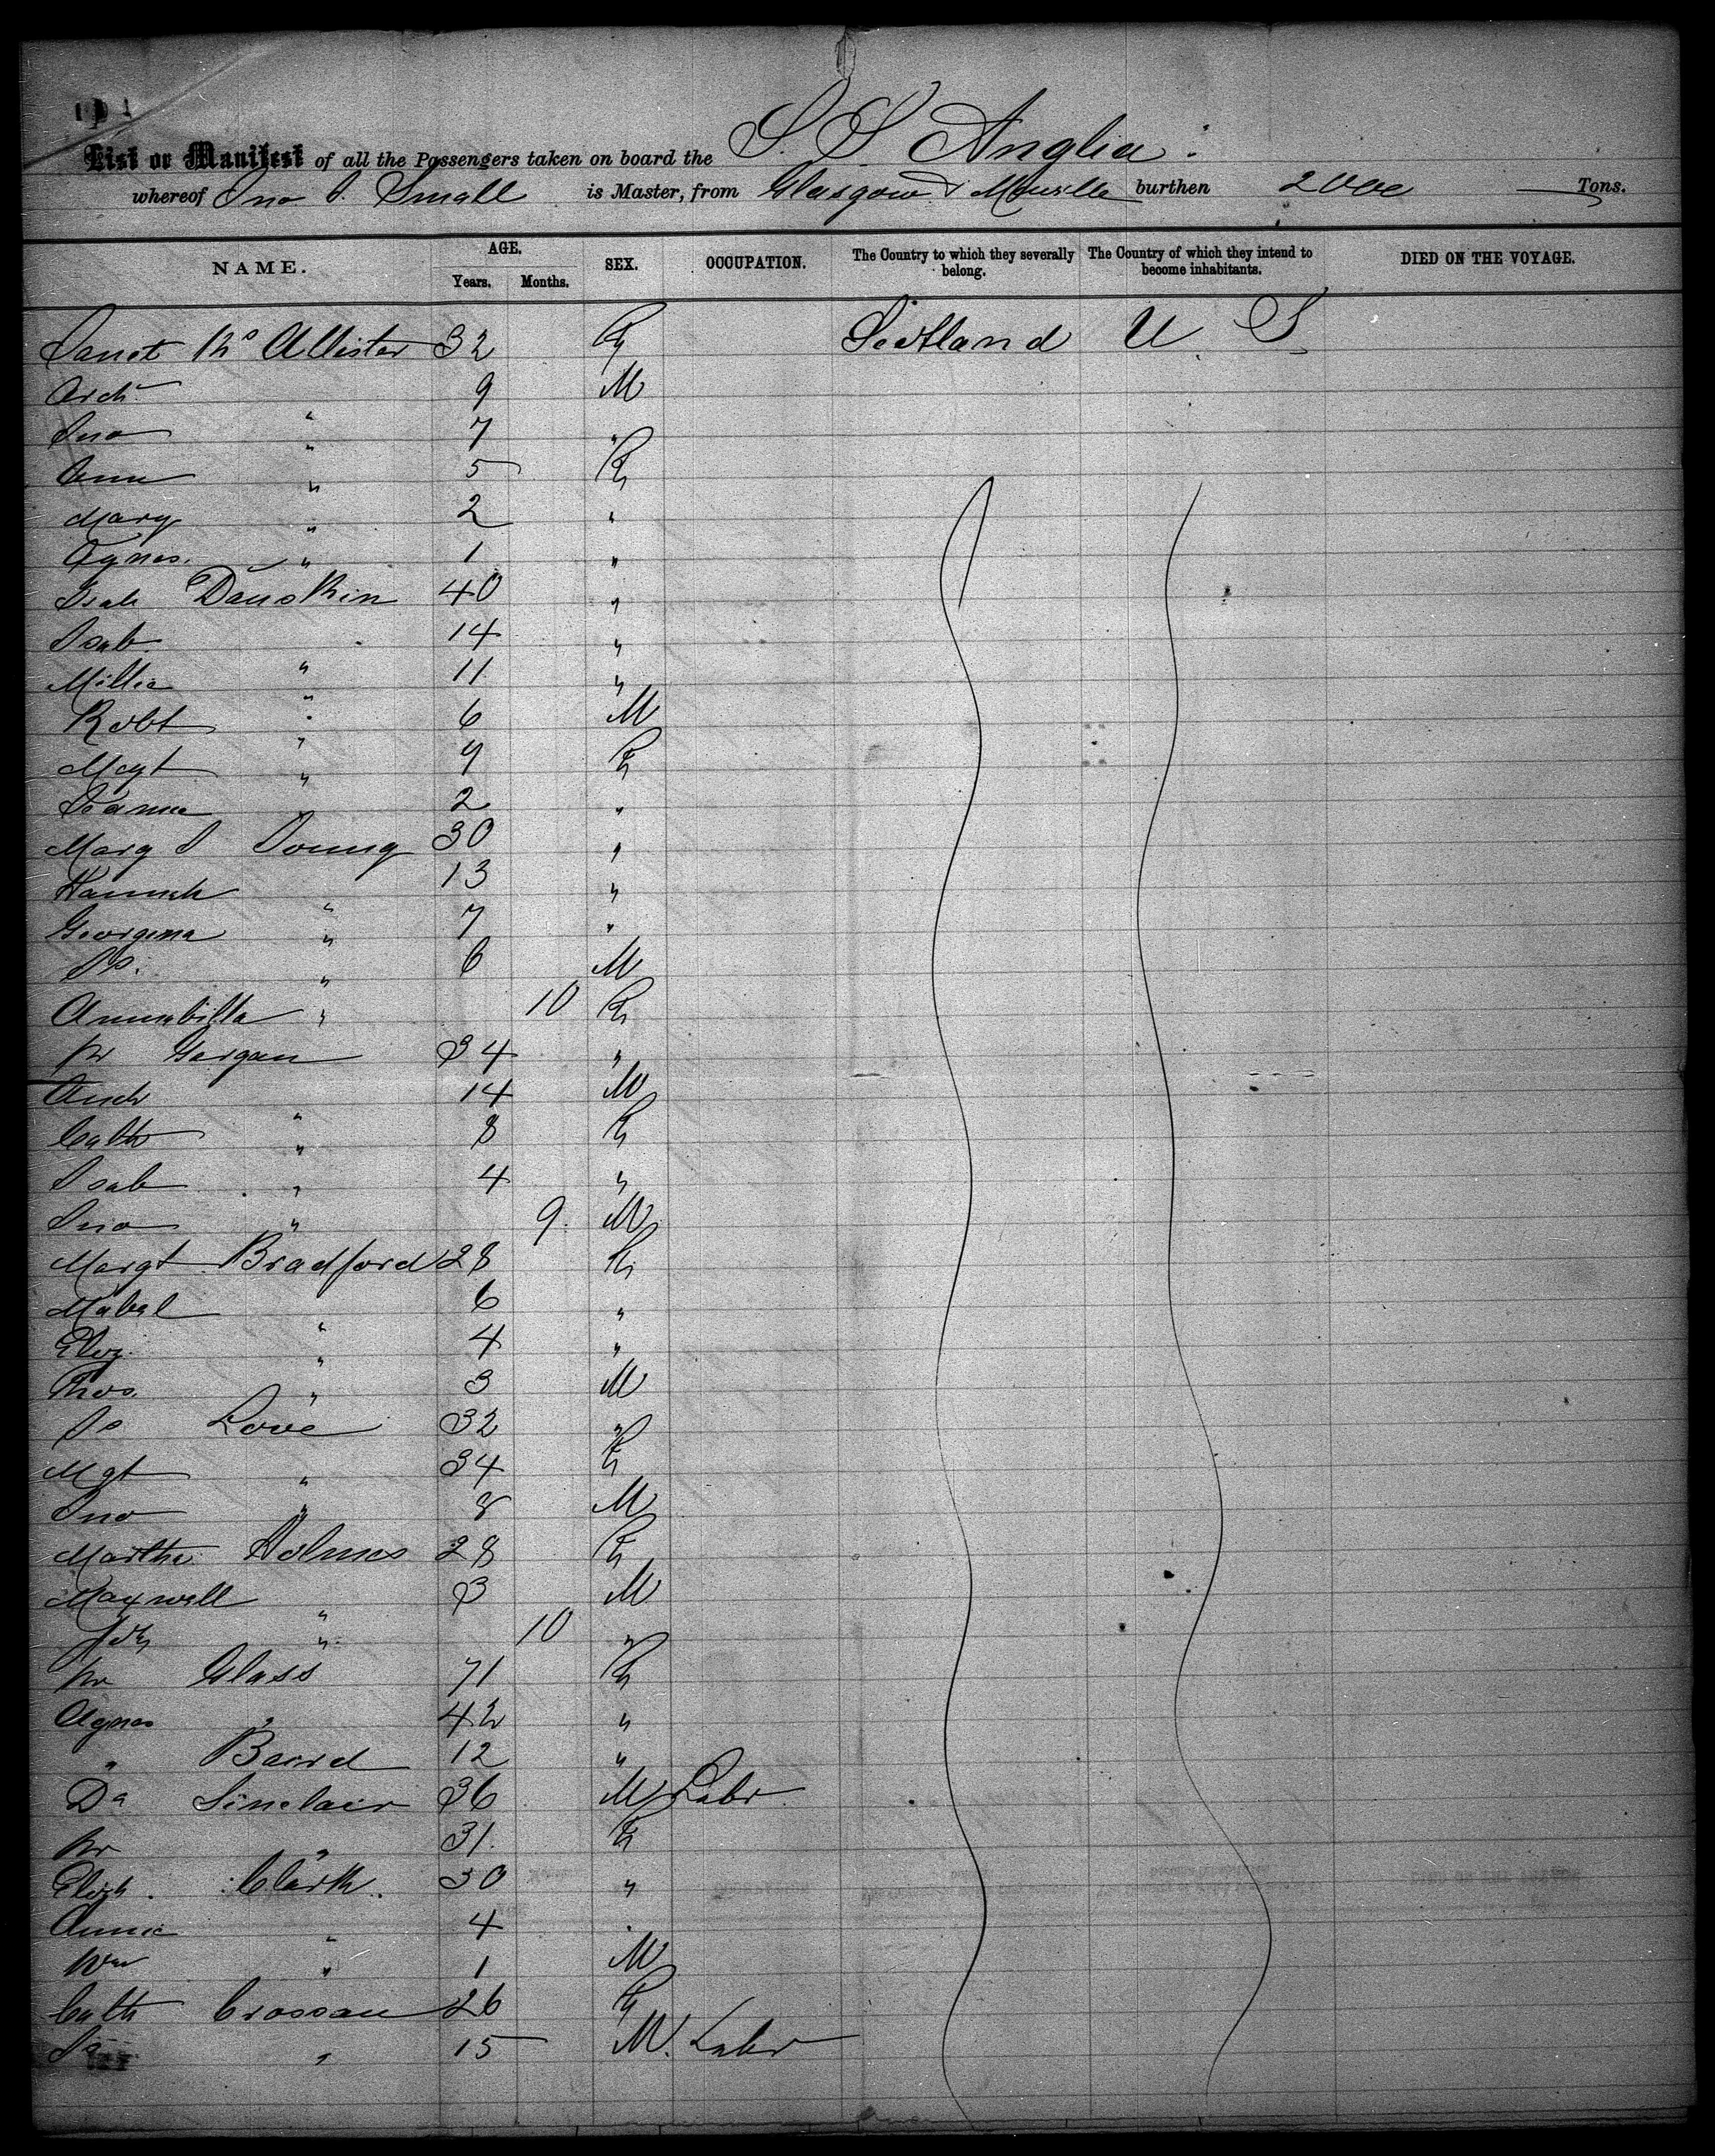 List or Manifest of all the Passengers taken on board the S. S. Anglia
whereof Jno S. Small is Master, from Glasgow & Moville burthen 2000 Tons.
NAME. AGE. Years. Months. SEX. OCCUPATION. The Country to which they severally belong. The Country of which they intend to become inhabitants. DIED ON THE VOYAGE.
Janet McAllister 32 F Scotland U S
Arch " 9 M
Jno " 7 "
Ann " 5 F
Mary " 2 "
Agnes " 1 "
Isab Dauskin 40 "
Isab " 14 "
Millie " 11 "
Robt " 6 M
Mgt " 4 F
Jeanne " 2 "
Mary J Young 30 "
Hannah " 13 "
Georgina " 7 "
Js. " 6 M
Annabilla " 10 F
Mr Gorgan 34 "
Andr " 14 M
Cath " 8 F
Isab " 4 "
Jno " 9 M
Margt Bradford 28 F
Mabel " 6 "
Eliz. " 4 "
Thos. " 3 M
Js Love 32 "
Mgt " 34 F
Jno " 8 M
Martha Holmes 28 F
Maxwell " 3 M
" 10 "
Mr Glass 71 F
Agnes " 42 "
" Baird 12 "
Da Sinclair 36 M Labr
Mr " 31 F
Elizh. Clark. 30 "
Annie " 4 "
Wm " 1 M
Cath Crossan 26 F
Js " 15 M. Labr